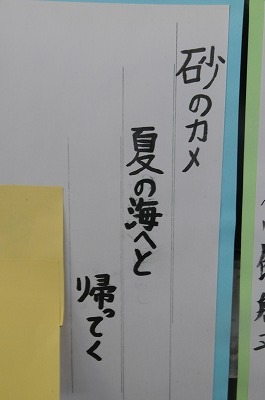 砂のカメ
夏の海へと
帰ってく